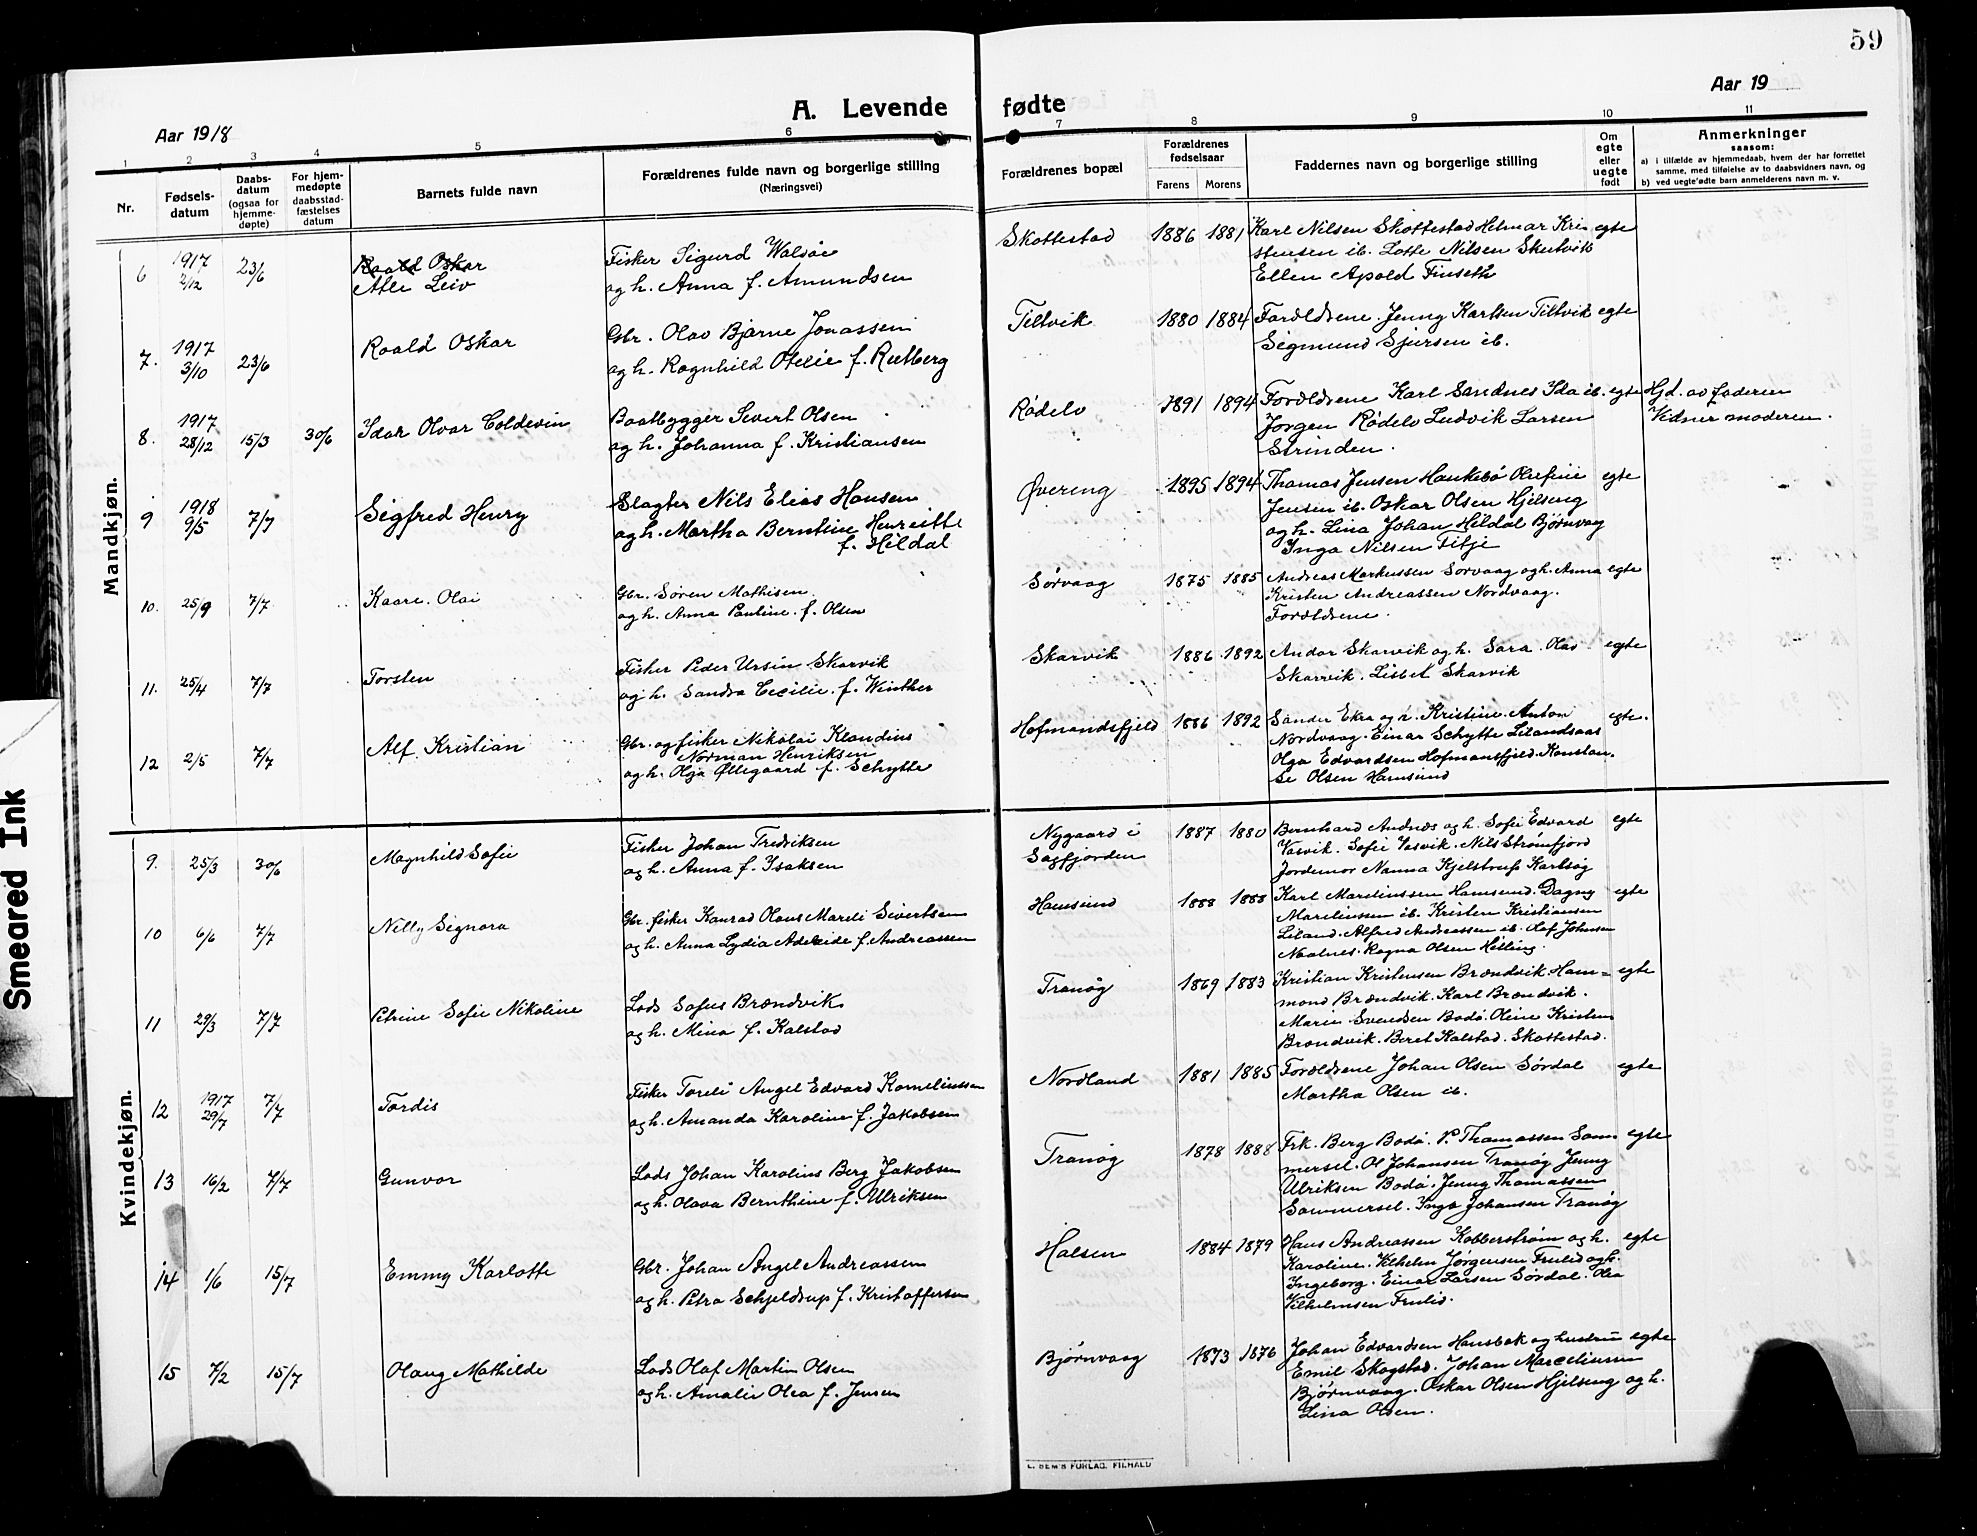 59
A. Levende fødte
Aar 1918
Aar 19
1 2 3 4 5 6 7 8 9 10 11
Nr.
Fødsels-
datum
Daabs-
datum
(ogsaa for
hjemme-
døpte)
For hjem-
medøpte
daabsstad-
fæstelses
datum
Barnets fulde navn
Forældrenes fulde navn og borgerlige stilling
(Næringsvei)
Forældrenes bopæl
Forældrenes
fødselsaar
Farens Morens
Faddernes navn og borgerlige stilling
Om
egte
eller
uegte
født
Anmerkninger
saasom:
a) i tilfælde av hjemmedaab, hvem der har forrettet
samme, med tilføielse av to daabsvidners navn, og
b) ved uegte fødte barn anmelderens navn m. v.
Mandkjøn.
6 1917 2/12 23/6
Roald Oskar
Atle Leiv
Fisker Sigurd Walsøe
og h. Anna f. Amundsen
Skottestad 1886 1881
Karl Nilsen Skottestad Helmar Kri
stensen ib. Lotte Nilsen Skutvik
Ellen Apold Finseth
egte
7. 1917 3/10 23/6
Roald Oskar
Gbr. Olav Bjarne Jonassen
og h. Ragnhild Otelie f. Rutberg
Tiltvik 1880 1884
Forældrene. Jenny Karlsen Tiltvik
Sigmund Sjursen ib.
egte
8. 1917 28/12 15/3 30/6
Idar Olvar Coldevin
Baatbygger Sivert Olsen
og h. Johanna f. Kristiansen
Rødelv 1891 1894
Forældrene Karl Sandnes Ida ib.
Jørgen Rødelv Ludvik Larsen
Strinden.
egte
Hjd. av faderen
Vidner moderen.
9 1918 9/5 7/7
Sigfred Henry
Slagter Nils Elias Hansen
og h. Martha Berntine Henriette
f. Hildal
Øvereng 1895 1894
Thomas Jensen Haukebø Olufine
Jensen ib. Oskar Olsen Hjelseng
og h. Lina Johan Hildal Bjørnvag
Inga Nilsen Titje
egte
10. 25/9 7/7
Kaare. Olai
Gbr. Søren Mathisen
og h. Anna Pauline. f. Olsen
Sørvaag 1875 1885
Andreas Markussen Sorvaag og h. Anna
Kristen Andreassen Nordvaag.
Forældrene.
egte
11. 25/4 7/7
Torsten
Fisker Peder Ursin Skarvik
og h. Sandra Cecilie. f. Winther
Skarvik 1886 1892
Andor Skarvik og h. Sara. Olav
Skarvik. Lisbet Skarvik
egte
12 2/5 7/7
Alf. Kristian
Gbr. og fisker Nikolai Klaudius
Norman Henriksen
og h. Olga Øllegaard f. Schytte
Hofmandsfjeld 1886 1892
Sander Ekra og h. Kristine. Anton
Nordvaag. Einar Schytte Lilandsaas
Olga Edvardsen Hofmansfjeld. Konstan.
se Olsen Hamsund
egte.
Kvindekjøn.
9. 25/3 30/6
Magnhild Sofie
Fisker Johan Fredriksen
og h. Anna f. Isaksen
Nygaard i
Sagfjorden
1887 1880
Bernhard Andnæs og h. Sofie Edvard
Vasvik. Sofie Vasvik. Nils Strømfjord
Jordemor Nanna Kjelstrup Karlsøy
egte
10 6/6 7/7
Nelly Signora
Gbr. fisker Konrad Olaus Mareli Sivertsen
og h. Anna Lydia Adeleide f. Andreassen
Hamsund 1888 1888
Karl Mareliussen Hamsund. Dagny
Mareliussen ib. Kristen Kristiansen
Liland. Alfred Andreassen ib. Olaf Johnsen
Naalnes. Ragna Olsen Helling.
egte
11 29/3 7/7
Petrine Sofie Nikoline
Lods Sofus Brændvik
og h. Mina f. Kalstad
Tranøg 1869 1883
Kristian Kristensen Brændvik Ham=
mond Brændvik. Karl Brændvik.
Marie Svendsen Bodø. Oline Kristens
Brændvik. Beret Kalstad. Skottestad.
egte
12 1917 29/7 7/7
Tordis
Fisker Toreli Angel Edvard Korneliussen
og h. Amanda Karoline f. Jakobsen
Nordland 1881 1885
Forældrene Johan Olsen Sørdal
Martha Olsen ib.
egte
13 16/2 7/7
Gunvor
Lods Johan Karolius Berg Jakobsen
og h. Olava Bernthine f. Ulriksen
Tranøg 1878 1888
Frk. Berg Bodø. P. Thomassen Som-
mersel. Ol Johansen Tranøg Jenny
Ulriksen Bodø. Jenny Thomassen
Sommersel. Inga Johansen Tranøg
egte
14 1/6 15/7
Emmy Karlotte
Gbr. Johan Angel Andreassen
og h. Petra Schjeldrup f. Kristoffersen
Halsen 1884 1879
Hans Andreassen Kobberstrøm og h.
Karoline. Vilhelm Jørgensen Frulid og h.
Ingeborg. Einar Larsen Sørdal. Olea
Vilhelmsen Frulid.
egte
15 7/2 15/7
Olaug Mathilde
Lods Olaf Martin Olsen
og h. Amalie Olea f. Jensen
Bjørnvaag 1873 1876
Johan Edvardsen Hansbak og hustru
Emil Skogstad. Johan Marceliussen
Bjørnvaag. Oskar Olsen Hjelseng og h.
Lina Olsen.
egte
E. SEM'S FORLAG. F.HALD
Smeared Ink